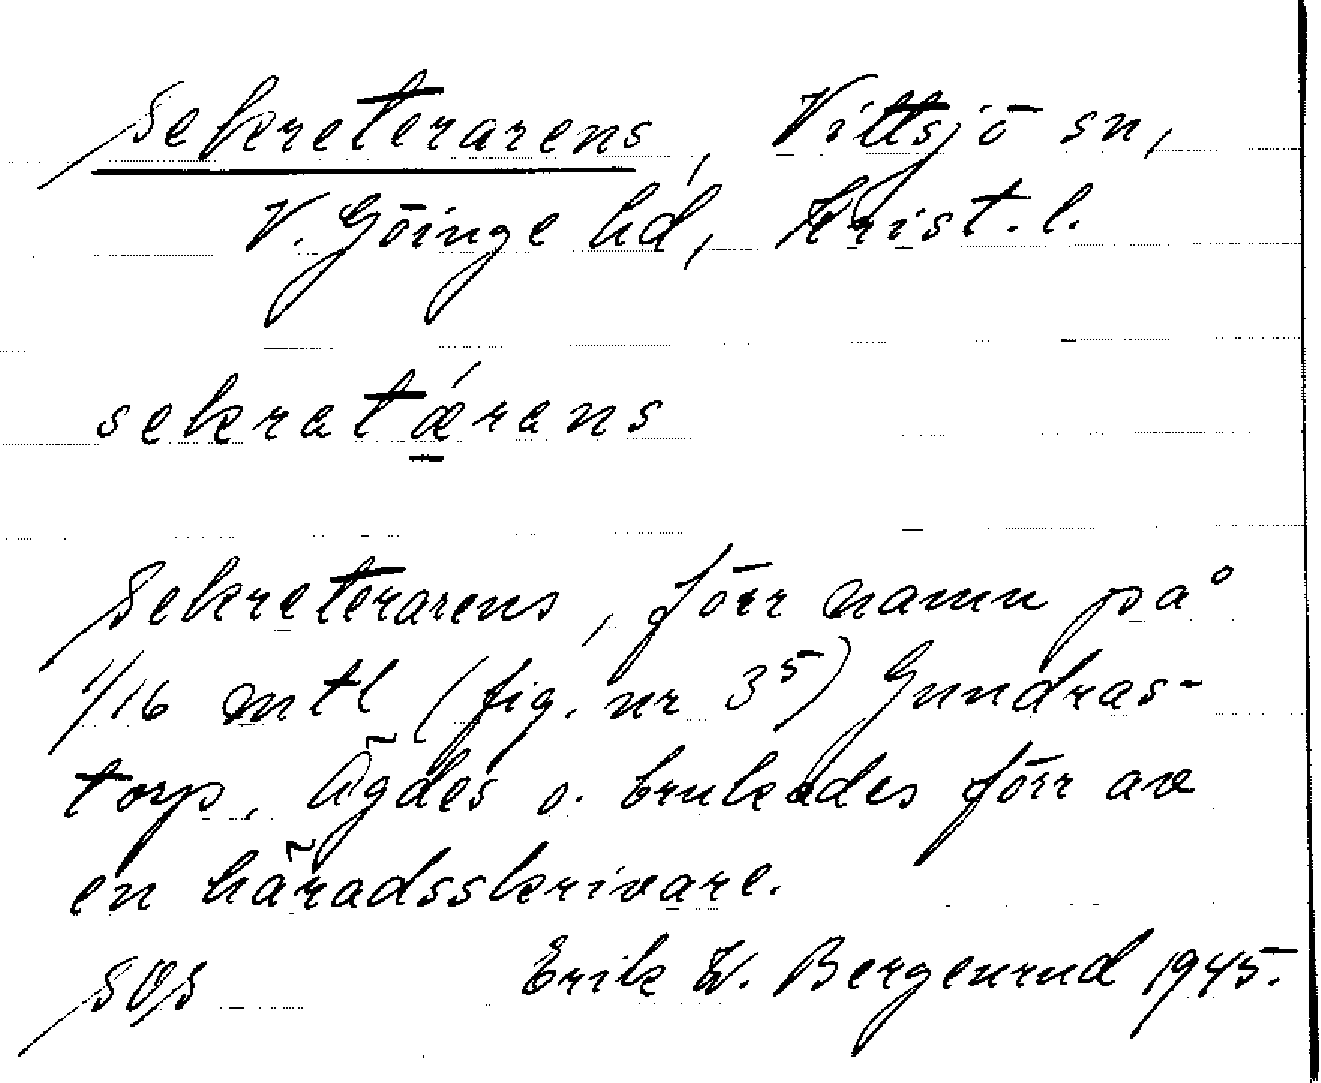 Sekreterarens, Vittsjö sn,
V. Göinge hd, Krist. l.
sekretǽrens
Sekreterarens, förr namn på
1/16 mtl (fig. nr 3⁵) Gundras-
torp. Ägdes o. brukades förr av
en häradsskrivare.
SOS Erik W. Bergenrud 1945.